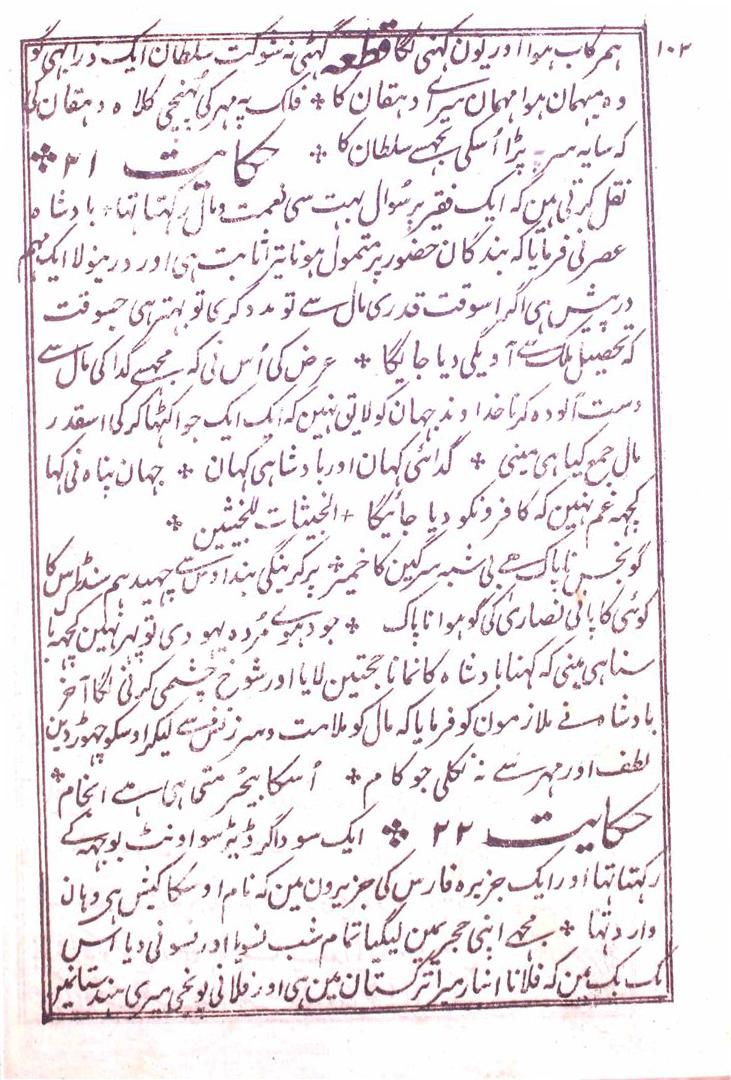 ۱۰۲
ہمرکاب ہوا اور یون کہنی لگا قطعہ گھٹی نہ شوکت سلطان ایک ذرا بہی گو
وہ میہمان ہوا مہمان سراے دہقان کا ٭ فلک پہ مہر کی پہنچی کلاہ دہقان کی
کہ سایہ سر پڑا اُسکی تجہسے سلطان کا ٭ حکایت ۲۱ ٭
نقل کرتی ہین کہ ایک فقیر پر سوال بہت سی نعمت و مال رکہتا تہا ٭ بادشاہ
عصر نی فرمایا کہ بندگان حضور پر متمول ہونا تیرا ثابت ہی اور درینولا ایک مہم
درپیش ہی اگر اسوقت قدری مال سے تو مدد کری تو بہتر ہی جسوقت
کہ تحصیل ملک سے آویگی دیا جائیگا ٭ عرض کی اُس نی کہ مجہسے گدا کی مال سے
دست آلودہ کرنا خداوند جہان کو لایق نہین کہ ایک ایک جو اکٹہا کر کی اسقدر
مال جمع کیا ہی مینی ٭ گدائی کہان اور بادشاہی کہان ٭ جہان پناہ نی کہا
کچہہ غم نہین کہ کافرونکو دیا جائیگا + الخبیثات للخبیثین ٭
گو نجس ناپاک ہے بی شبہ سرگین کا خمیر ٭ پر کرینگی بند اوس سے چہید ہم سنڈاس کا
کوئی کا پانی نصاریٰ کی گو ہوا ناپاک ٭ جو دہوے مُردہ یہودی تو پہر نہین کچہہ با
سنا ہی مینی کہ کہنا بادشاہ کا نمانا حجتین لایا اور شوخ چشمی کرنی لگا آخر
بادشاہ نے ملازمون کو فرمایا کہ مال کو ملامت و سرزنش سے لیکر اوسکو چہوڑ دین
لطف اور مہر سے نہ نکلی جو کام ٭ اُسکا بیحرمتی ہی ہے انجام ٭
حکایت ۲۲ ٭ ایک سوداگر ڈیڑ سو اونٹ بوجہہ کے
رکہتا تہا اور ایک جزیرہ فارس کی جزیرون مین کہ نام اوسکا کیش ہی وہان
وارد تہا ٭ مجہے اپنی حجرے مین لیگیا تمام شب نسویا اور نسونی دیا اس
بک بک مین کہ فلانا انبار میرا ترکستان مین ہی اور فلانی پونجی میری ہندستانمین